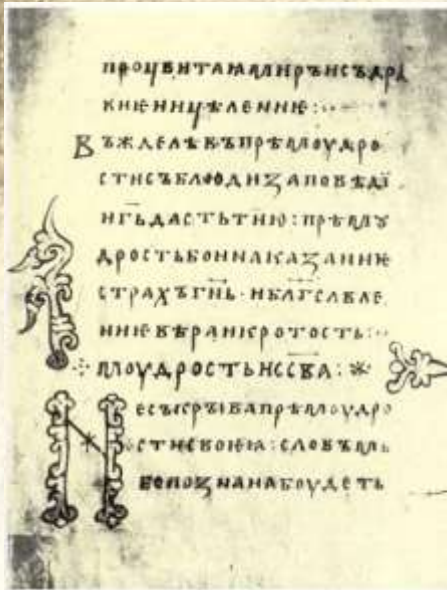 процвитаꙗ миръ и съдра
виѥ и ицѣлениѥ :
Въжделѣвъ прѣмоудро
сти съблюди заповѣдї
и г҃ь дасть ти ю : прѣмоу
дрость бо и наказаниѥ
страхъ г҃нь · и бл҃гславле
ниѥ вѣра и кротость :
моудрость ис҃ва :
Не съкрыва прѣмоудро
сти своѥꙗ : словъмь
бо познана боудеть